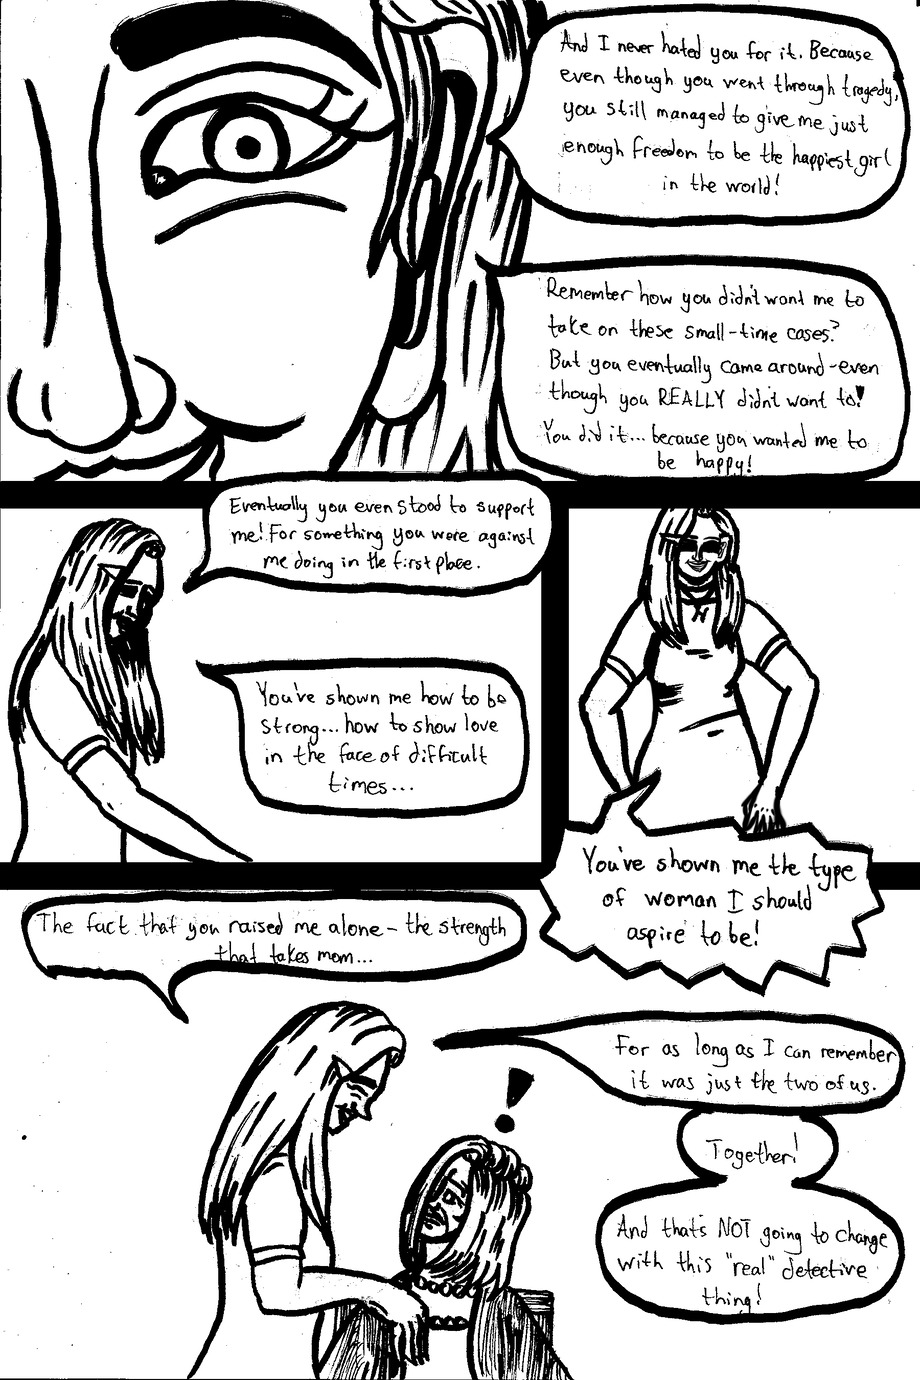 And I never hated you for it. Because
even though you went through tragedy,
you still managed to give me just
enough freedom to be the happiest girl
in the world!
Remember how you didn't want me to
take on these small-time cases?
But you eventually came around-even
though you REALLY didn't want to!
You did it... because you wanted me to
be happy!
Eventually you even stood to support
me! For something you were against
me doing in the first place.
You've shown me how to be
strong... how to show love
in the face of difficult
times...
H
You've shown me the type
of woman I should
aspire to be!
The fact that you raised me alone- the strength
that takes mom...
For as long as I can remember
it was just the two of us.
!
Together!
And that's NOT going to change
with this "real" detective
thing!